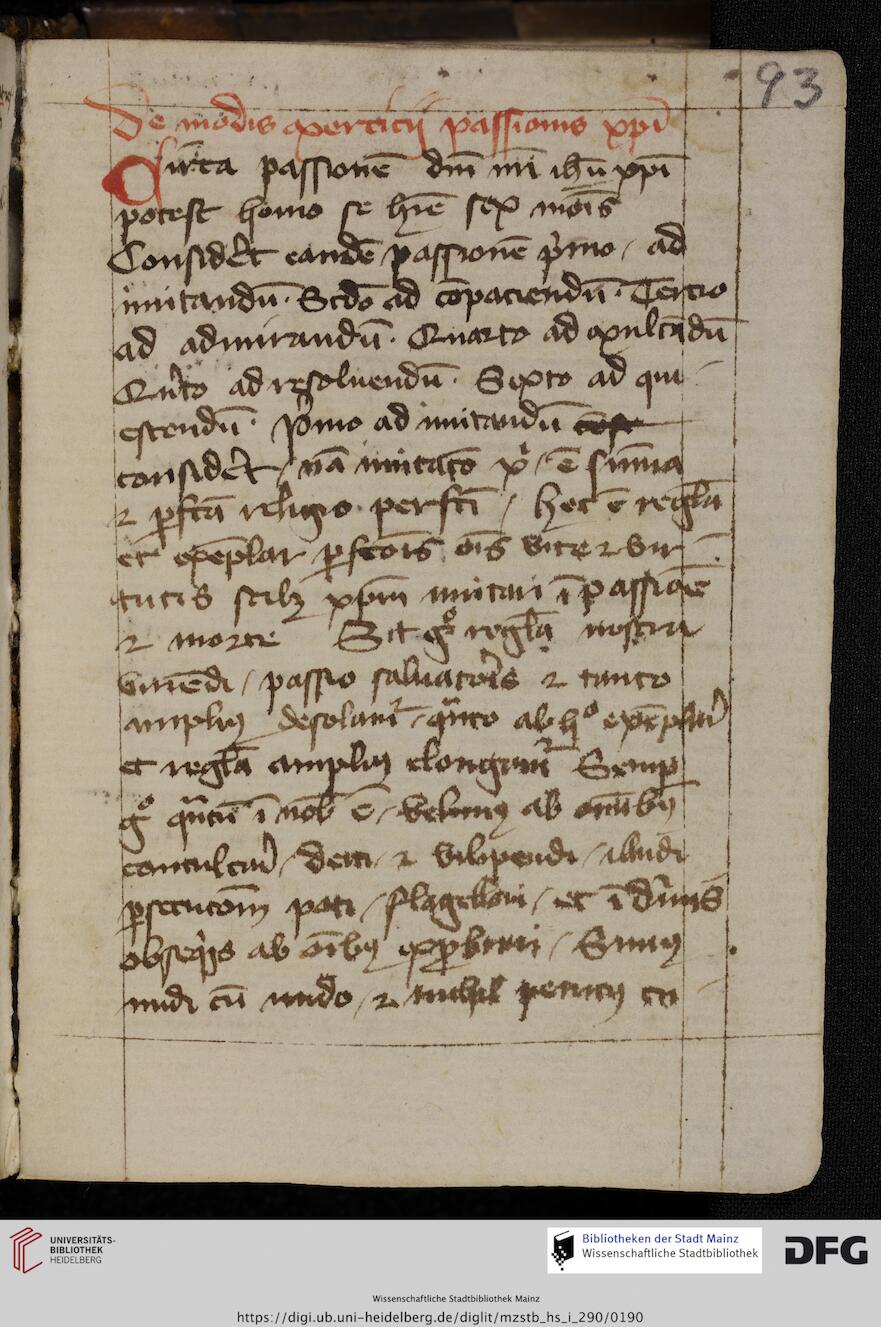 93
De modis exercicij passionis xpi
Circa passionē dni nri ihu xpi
potest homo se hrē sex mois
Considet eandē passionē pimo / ad
imitandū · Scdo ad cōpaciendū · Tercio
ad admirandū · Quarto ad exultādū
Quito ad resoluendū · Sexto ad qui-
escendū · pimo ad imitandū
consideret / nā imitaco xi / ē sūma
et pfcā religio perfcī / hec ē regla
et exēplar pfcois ois vite et vir-
tutis scilz xpm imitari ī passiōe
et morte Sit go regla nostra
viuēdi / passio saluatoris et tanto
amplius desolamr / qnto ab ho exēplari
et regla amplius elongamr Semp
go qntū ī nob ē / velimus ab omibus
conculcari / deici et vilipendi / illudi
psecucom pati / flagellari / et ī diuis
obseqis ab oibus exprobrari / Simus
nudi cū nudo / et nichil penitus cu-
UNIVERSITÄTS-
BIBLIOTHEK
HEIDELBERG
Bibliotheken der Stadt Mainz
Wissenschaftliche Stadtbibliothek
DFG
Wissenschaftliche Stadtbibliothek Mainz
https://digi.ub.uni-heidelberg.de/diglit/mzstb_hs_i_290/0190